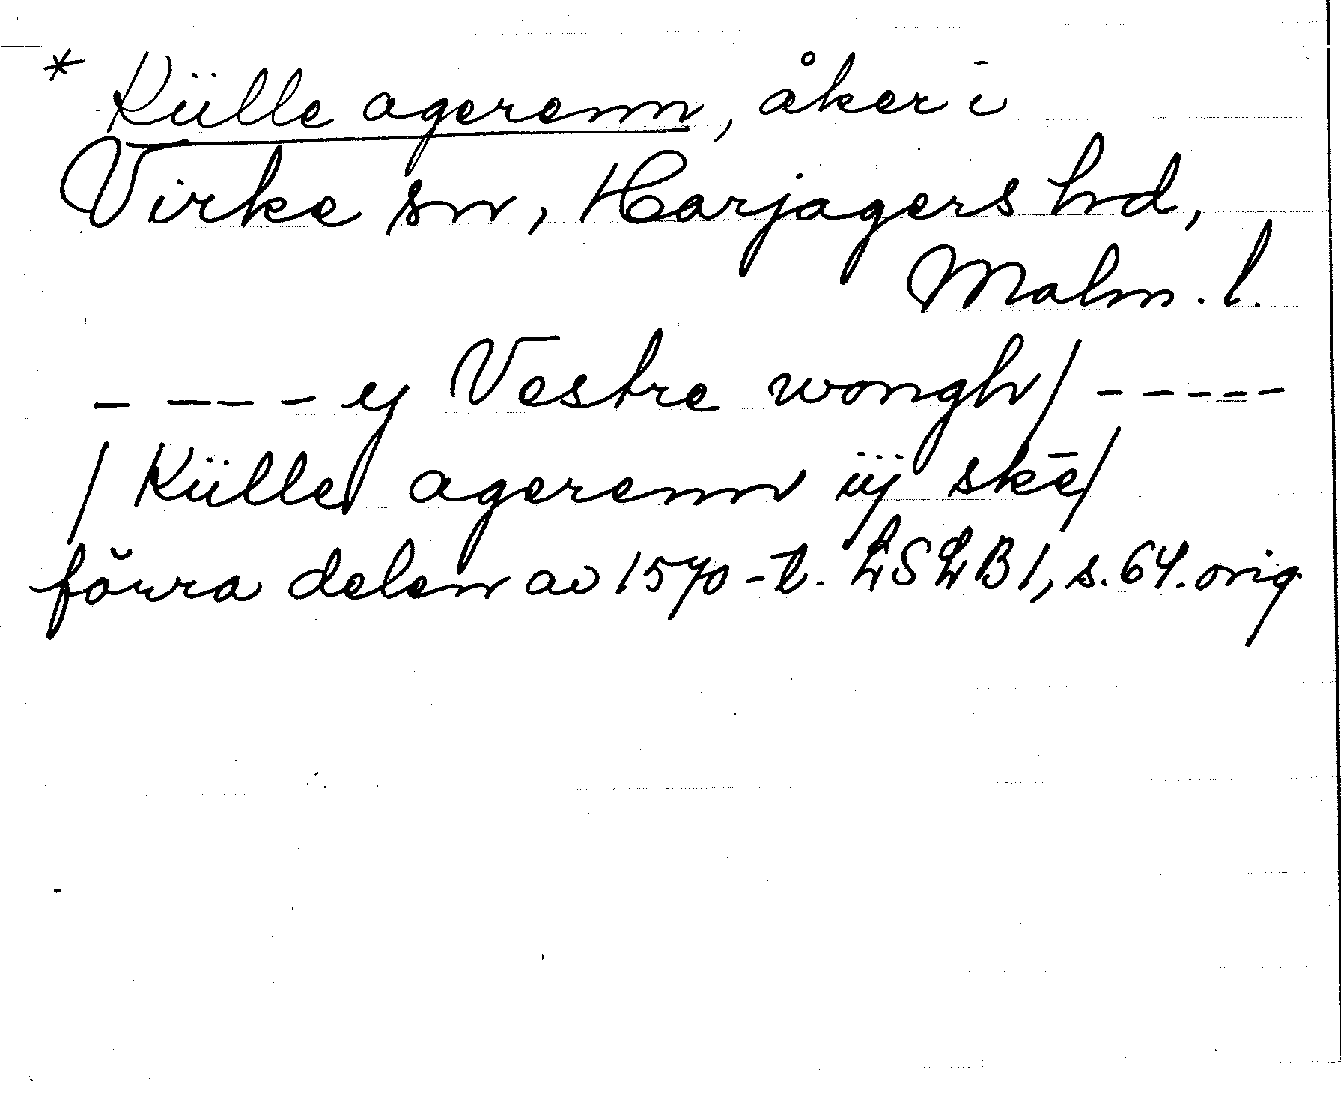 * Külle agerenn, åker i
Virke sn, Harjagers hd,
Malm. l.
_ _ _ _ _ ey Vestre wongh/ - - - - -
/ Külle agerenn iij skē/
förra delen av 1570-t. LSLB 1, s. 64. orig